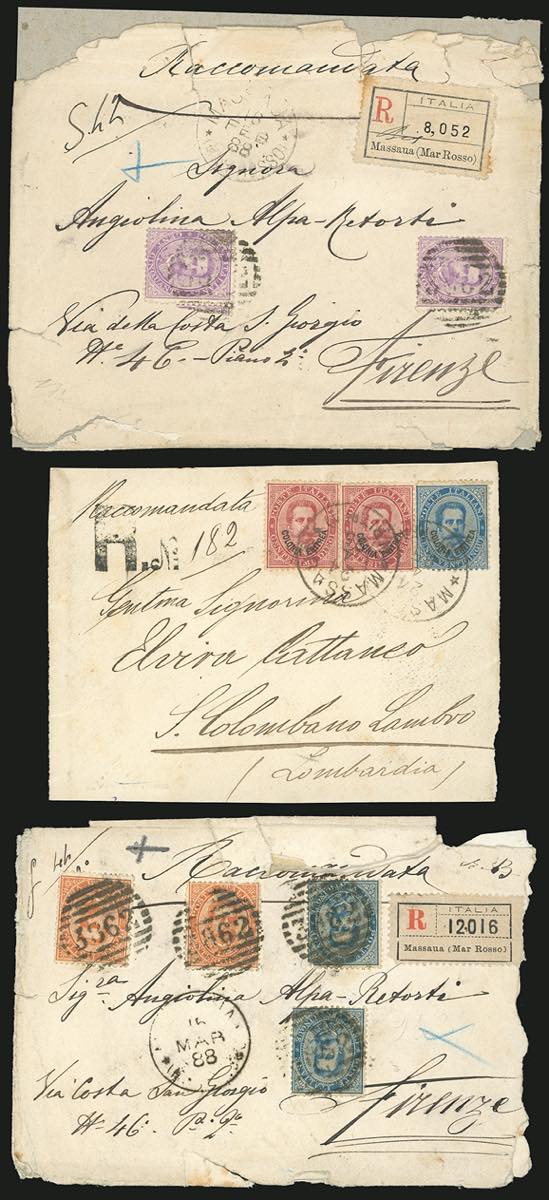 Raccomandata
ITALIA
R 8,052
Massaua (Mar Rosso)
Signora
Angiolina Alpa-Retorti
Via della Costa S. Giorgio
Nº 46 - Piano 2º
Firenze
Raccomandata
R. N 182
POSTE ITALIANE
COLONIA ERITREA
POSTE ITALIANE
COLONIA ERITREA
POSTE ITALIANE
COLONIA ERITREA
Gentma Signorina
Elvira Cattaneo
S. Colombano Lambro
(Lombardia)
Raccomandata
3362
3362
ITALIA
R 12016
Massaua (Mar Rosso)
Sigra Angiolina Alpa-Retorti
MAR
88
Via Costa San Giorgio
Nº 46 Pº 2º
Firenze